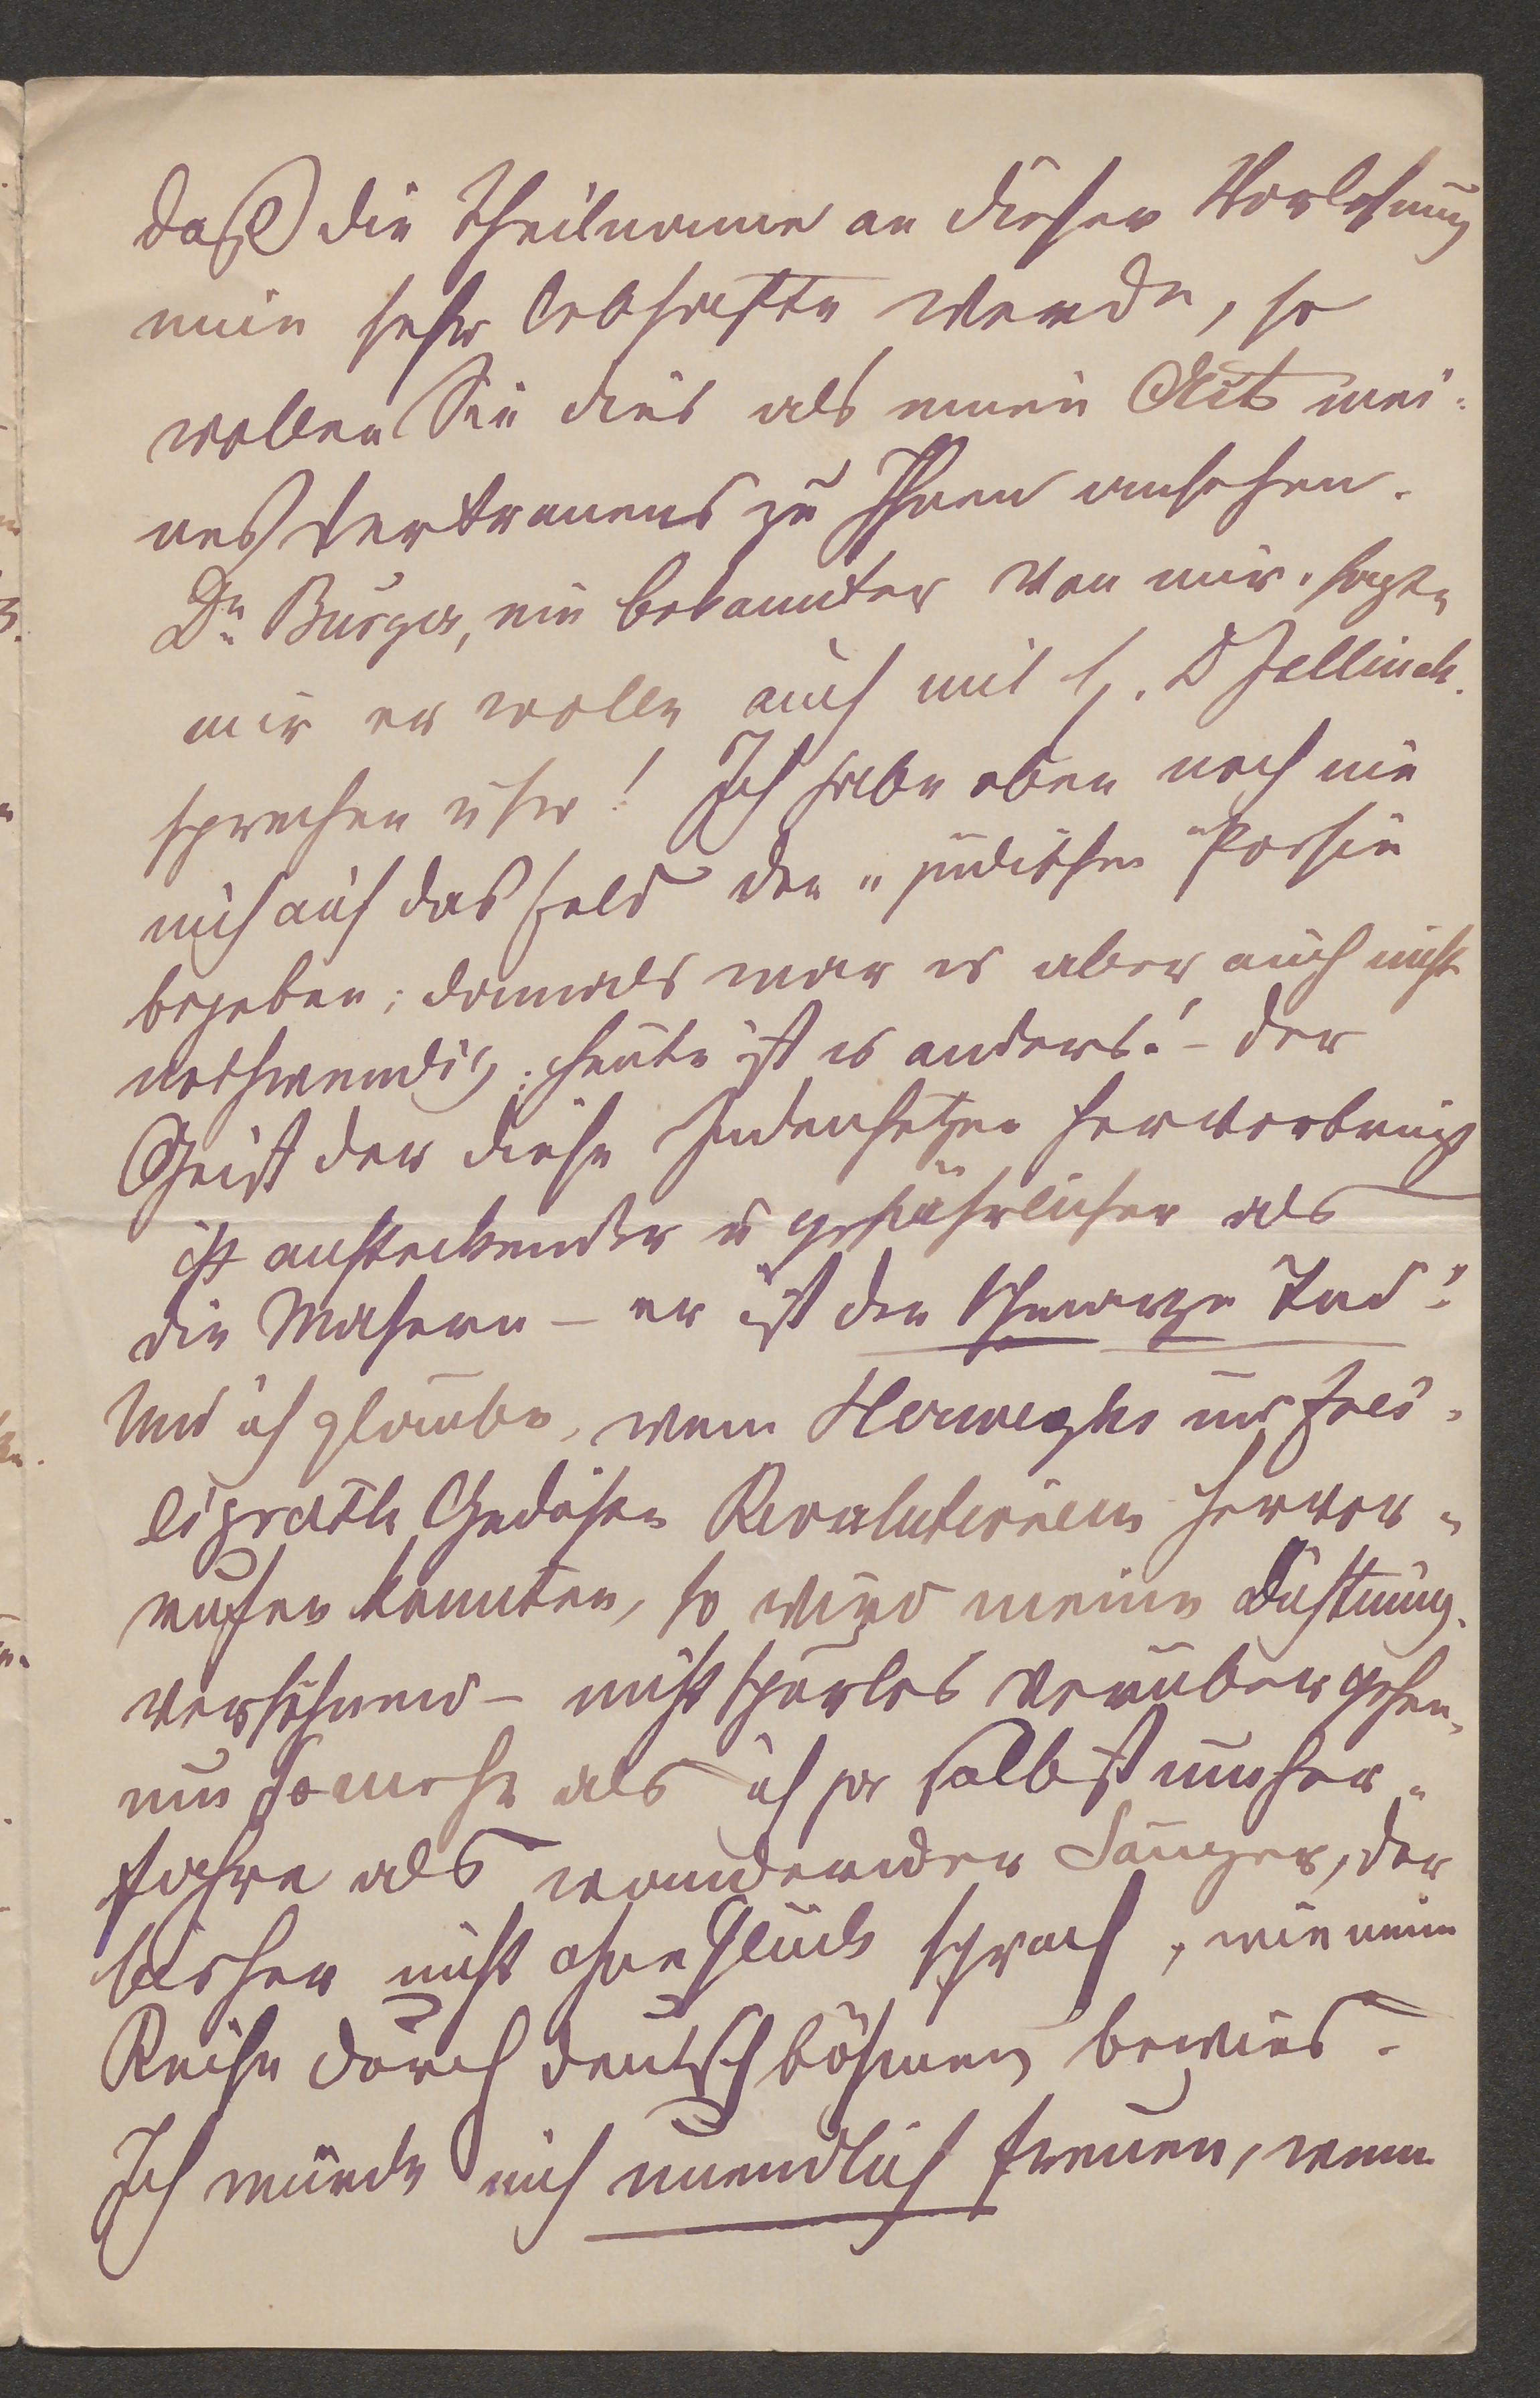 daß die Theilname an dieser Vorlesung
eine sehr lebhafte werde, so
wollen Sie dies als einen Act mei-
nes Vertrauens zu Ihnen ansehen.
Dr. Bürger, ein bekannter von mir sagte
mir er wolle auch mit H. D Jellinek
sprechen usw! Ich habe eben noch nie
mich auf das Feld der „jüdischen“ Poesie
begeben; damals war es aber auch nicht
nothwendig; heute ist es anders! – der
Geist der diese Judenhetzen hervorbringt
ist ansteckender u gefährlicher als
die Masern – er ist der schwarze Tod!
Und ich glaube, wenn Herweghs und Frei-
ligrath Gedichte Revolutionen hervor-
rufen konnten, so wird meine Dichtung
versöhnend – nicht spurlos vorüber gehen,
um so mehr als ich ja selbst umher-
fahre als wandernder Sänger, der
bisher nicht ohne Glück sprach, wie meine
Reise durch deutschböhmen bewies.
Ich würde mich unendlich freuen, wenn